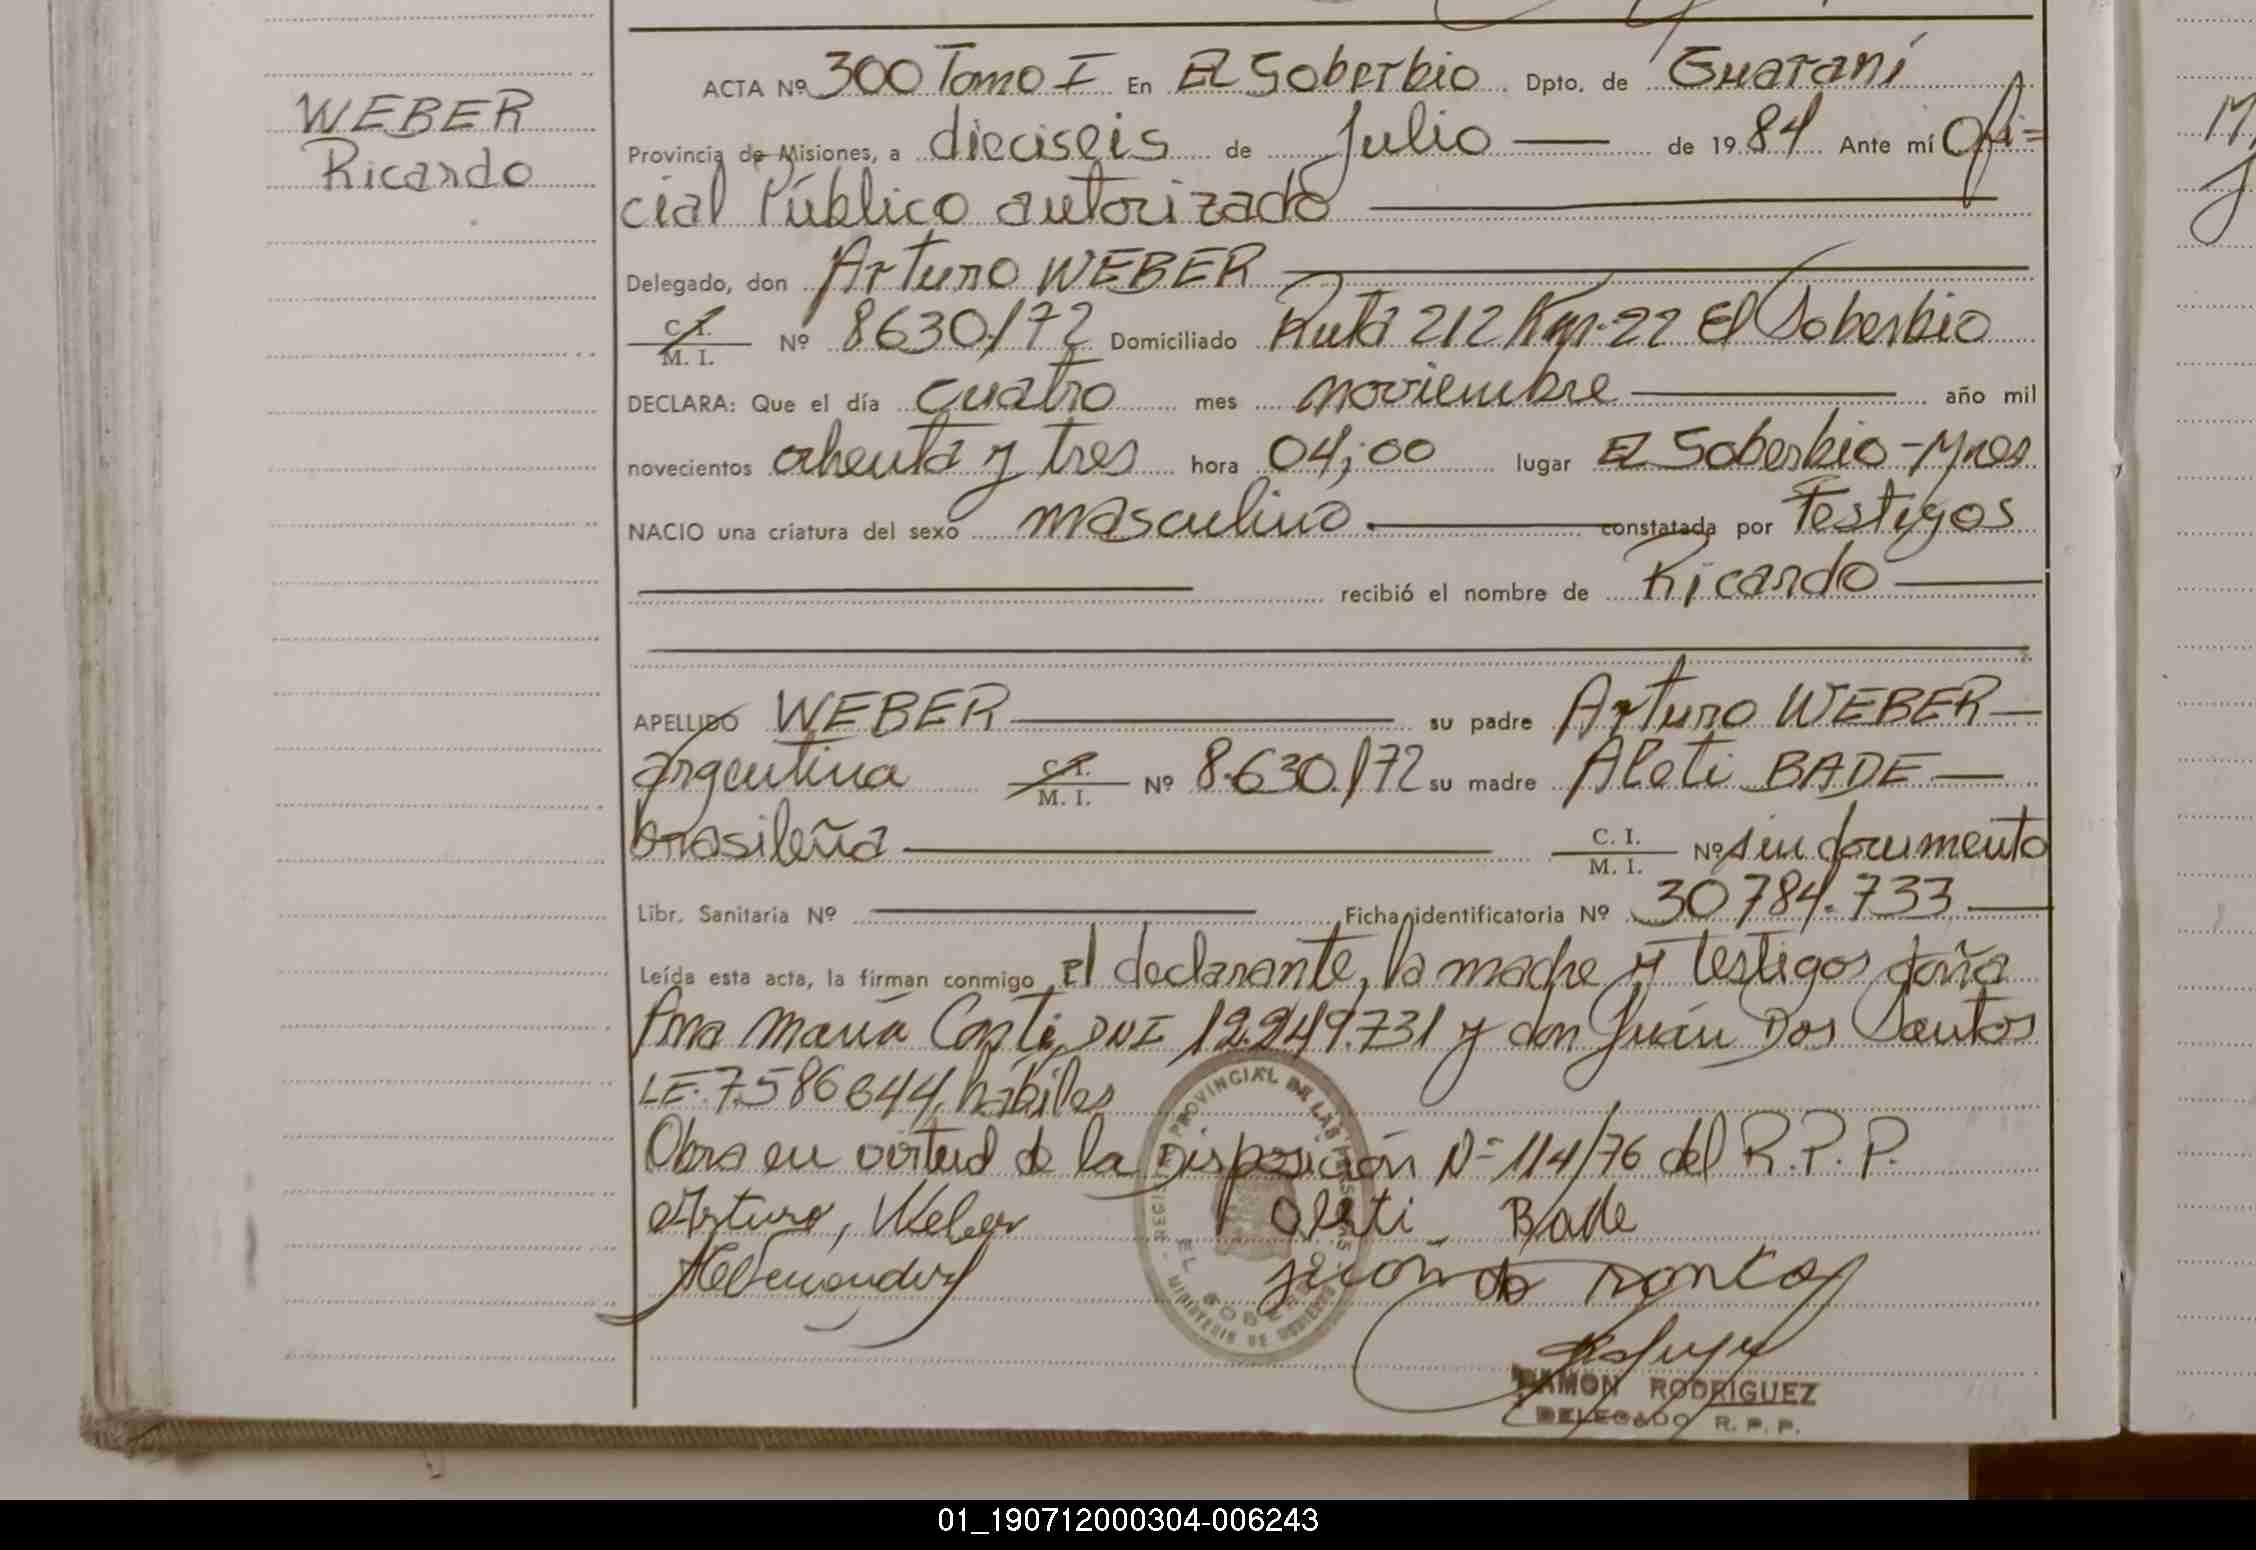 WEBER
Ricardo
ACTA Nº 300 Tomo I En El Soberbio Dpto. de Guaraní
Provincia de Misiones, a dieciseis de Julio de 1984 Ante mí Ofi=
cial Público autorizado
Delegado, don Arturo WEBER
C. I. M. I. Nº 8630.172 Domiciliado Ruta 212 Km. 22 El Soberbio
DECLARA: Que el día cuatro mes noviembre año mil
novecientos ochenta y tres hora 04;00 lugar El Soberbio - Mnes
NACIO una criatura del sexo masculino. constatada por Testigos
recibió el nombre de Ricardo
APELLIDO WEBER su padre Arturo WEBER
argentina C. I. M. I. Nº 8.630.172 su madre Aleti BADE
brasileña C. I. M. I. Nº sin documento
Libr. Sanitaria Nº Ficha identificatoria Nº 30784.733
Leída esta acta, la firman conmigo el declarante, la madre y testigos doña
Ana María DNI 12.249.731 y don Juan Dos Santos
LE. 7.586644, hábiles
Obra en virtud de la Disposición Nº 114/76 del R.P.P.
Arturo, Weber Aleti Bade
REGISTRO PROVINCIAL DE LAS PERSONAS - MINISTERIO DE GOBIERNO
EL SOBERBIO
RAMON RODRIGUEZ
DELEGADO R. P. P.
01_190712000304-006243